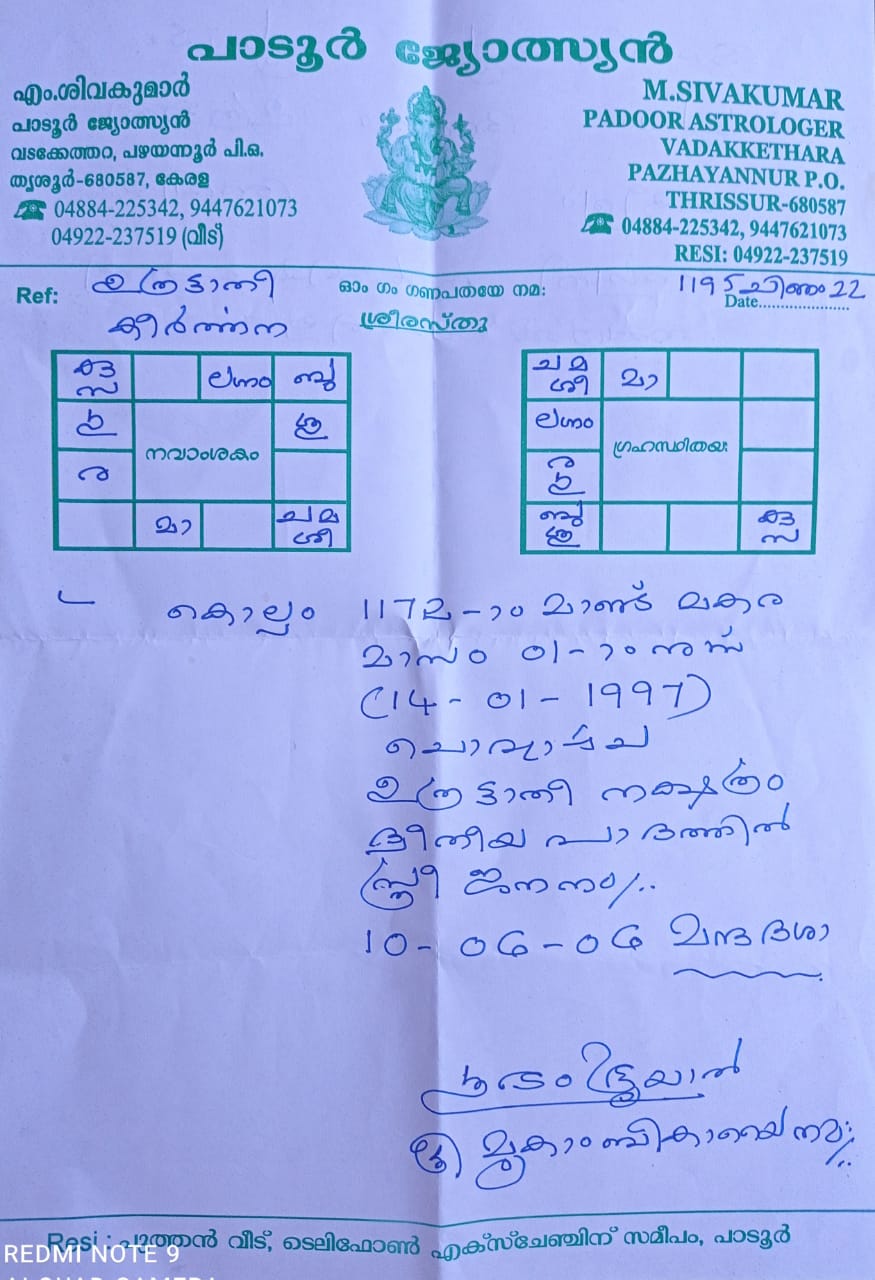 പാടൂർ ജ്യോത്സ്യൻ
എം.ശിവകുമാർ
പാടൂർ ജ്യോത്സ്യൻ
വടക്കേത്തറ, പഴയന്നൂർ പി.ഒ.
തൃശൂർ-680587, കേരള
☎ 04884-225342, 9447621073
04922-237519 (വീട്)
M.SIVAKUMAR
PADOOR ASTROLOGER
VADAKKETHARA
PAZHAYANNUR P.O.
THRISSUR-680587
☎ 04884-225342, 9447621073
RESI: 04922-237519
Ref: ഉത്രട്ടാതി
കീർത്തന
ഓം ഗം ഗണപതയേ നമ:
ശ്രീരസ്തു
1195 ചിങ്ങം 22
Date....................
കു ലഗ്നം ബു
സ
ശു
നവാംശകം
ര
മാ ച മ
ശി
ച മ മാ
ശി
ലഗ്നം
ഗ്രഹസ്ഥിതയ:
ര
ബു കു
ശു സ
കൊല്ലം 1172-ാം മാണ്ട് മകര
മാസം 01-ാം നു
(14-01-1997)
ചൊവ്വാഴ്ച
ഉത്രട്ടാതി നക്ഷത്രം
ദ്വിതീയ പാദത്തിൽ
സ്ത്രീ ജനനം/..
10-06-06 മന്ദദശാ
ശ്രീ മൂകാംബികായൈ നമ:/..
Resi : പുത്തൻ വീട്, ടെലിഫോൺ എക്സ്ചേഞ്ചിന് സമീപം, പാടൂർ
REDMI NOTE 9